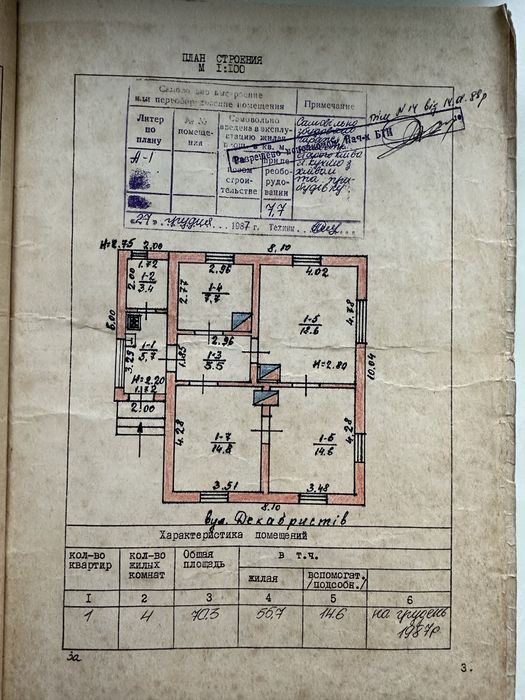 ПЛАН СТРОЕНИЯ
М 1:100
Самовольно выстроенные
или переоборудованные помещения
Примечание
Литер по плану
№ № помещения
Самовольно введена в эксплуатацию жилая площ. в кв. м.
А-1
новом строительстве
переоборудовании
7,7
Разрешено исполкомом Нач-к БТИ
№ 14 від 14
88р
"27" грудня 1987 г. Техник
H=2.75 2.00
8.10
1.72
2.00
1-2
3.4
2.96
2.77
1-4
7,7
4.02
1-5
18.6
4.78
6.00
3.29
1-1
5,7
H=2.20
1.72
2.00
1.85
2.96
1-3
5.5
H=2.80
10.04
4.28
1-7
14.8
3.51
1-6
14.6
4.28
3.48
8.10
вул. Декабристів
Характеристика помещений
кол-во квартир
кол-во жилых комнат
Общая площадь
в т.ч.
жилая
вспомогат. /подсобн./
I 2 3 4 5 6
1 4 70.3 55,7 14.6 на грудень 1987р
за
3.